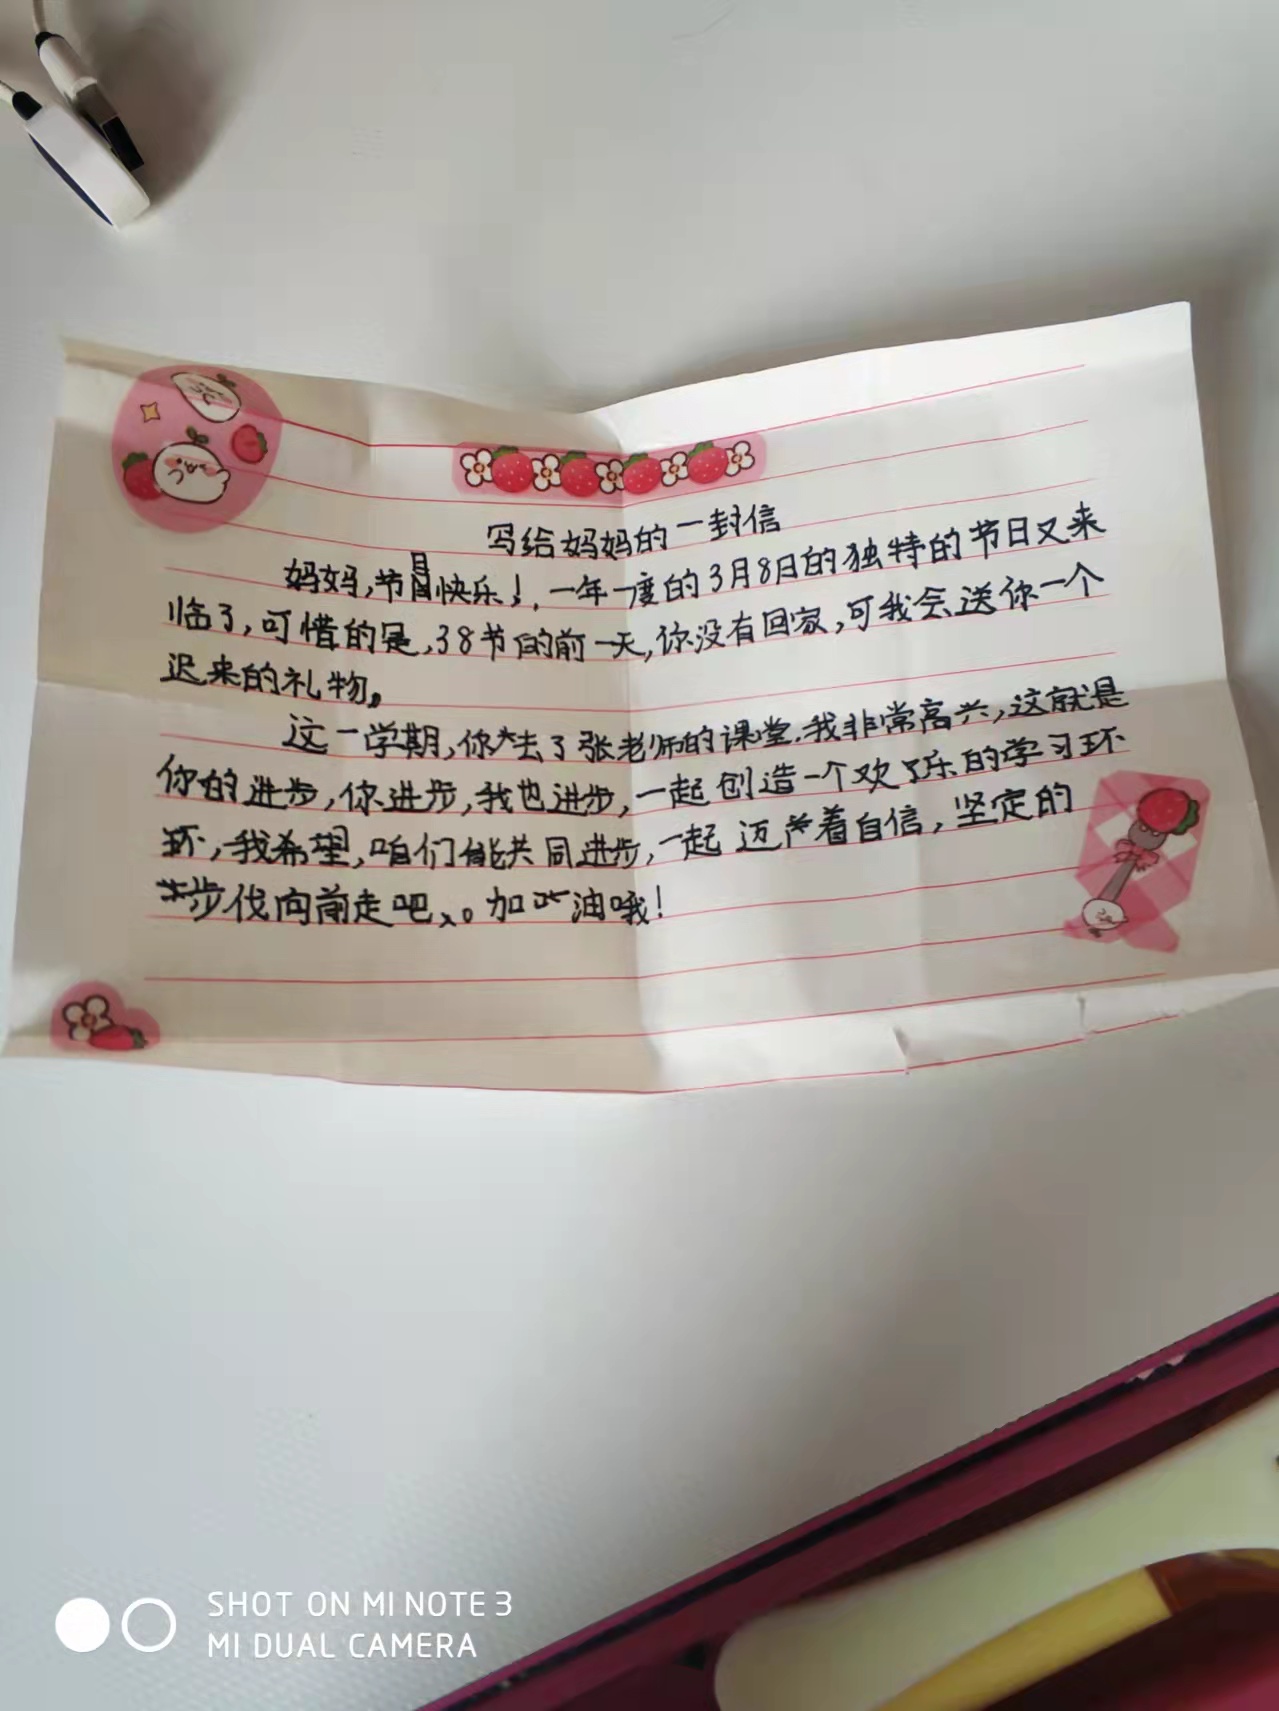 写给妈妈的一封信
妈妈,节日快乐!,一年一度的3月8日的独特的节日又来
临了,可惜的是,38节的前一天,你没有回家,可我会送你一个
迟来的礼物。
这一学期,你去了张老师的课堂,我非常高兴,这就是
你的进步,你进步,我也进步,一起创造一个欢乐的学习环
环,我希望,咱们能共同进步,一起迈着自信,坚定的
步伐向前走吧、。加油哦!
SHOT ON MI NOTE 3
MI DUAL CAMERA